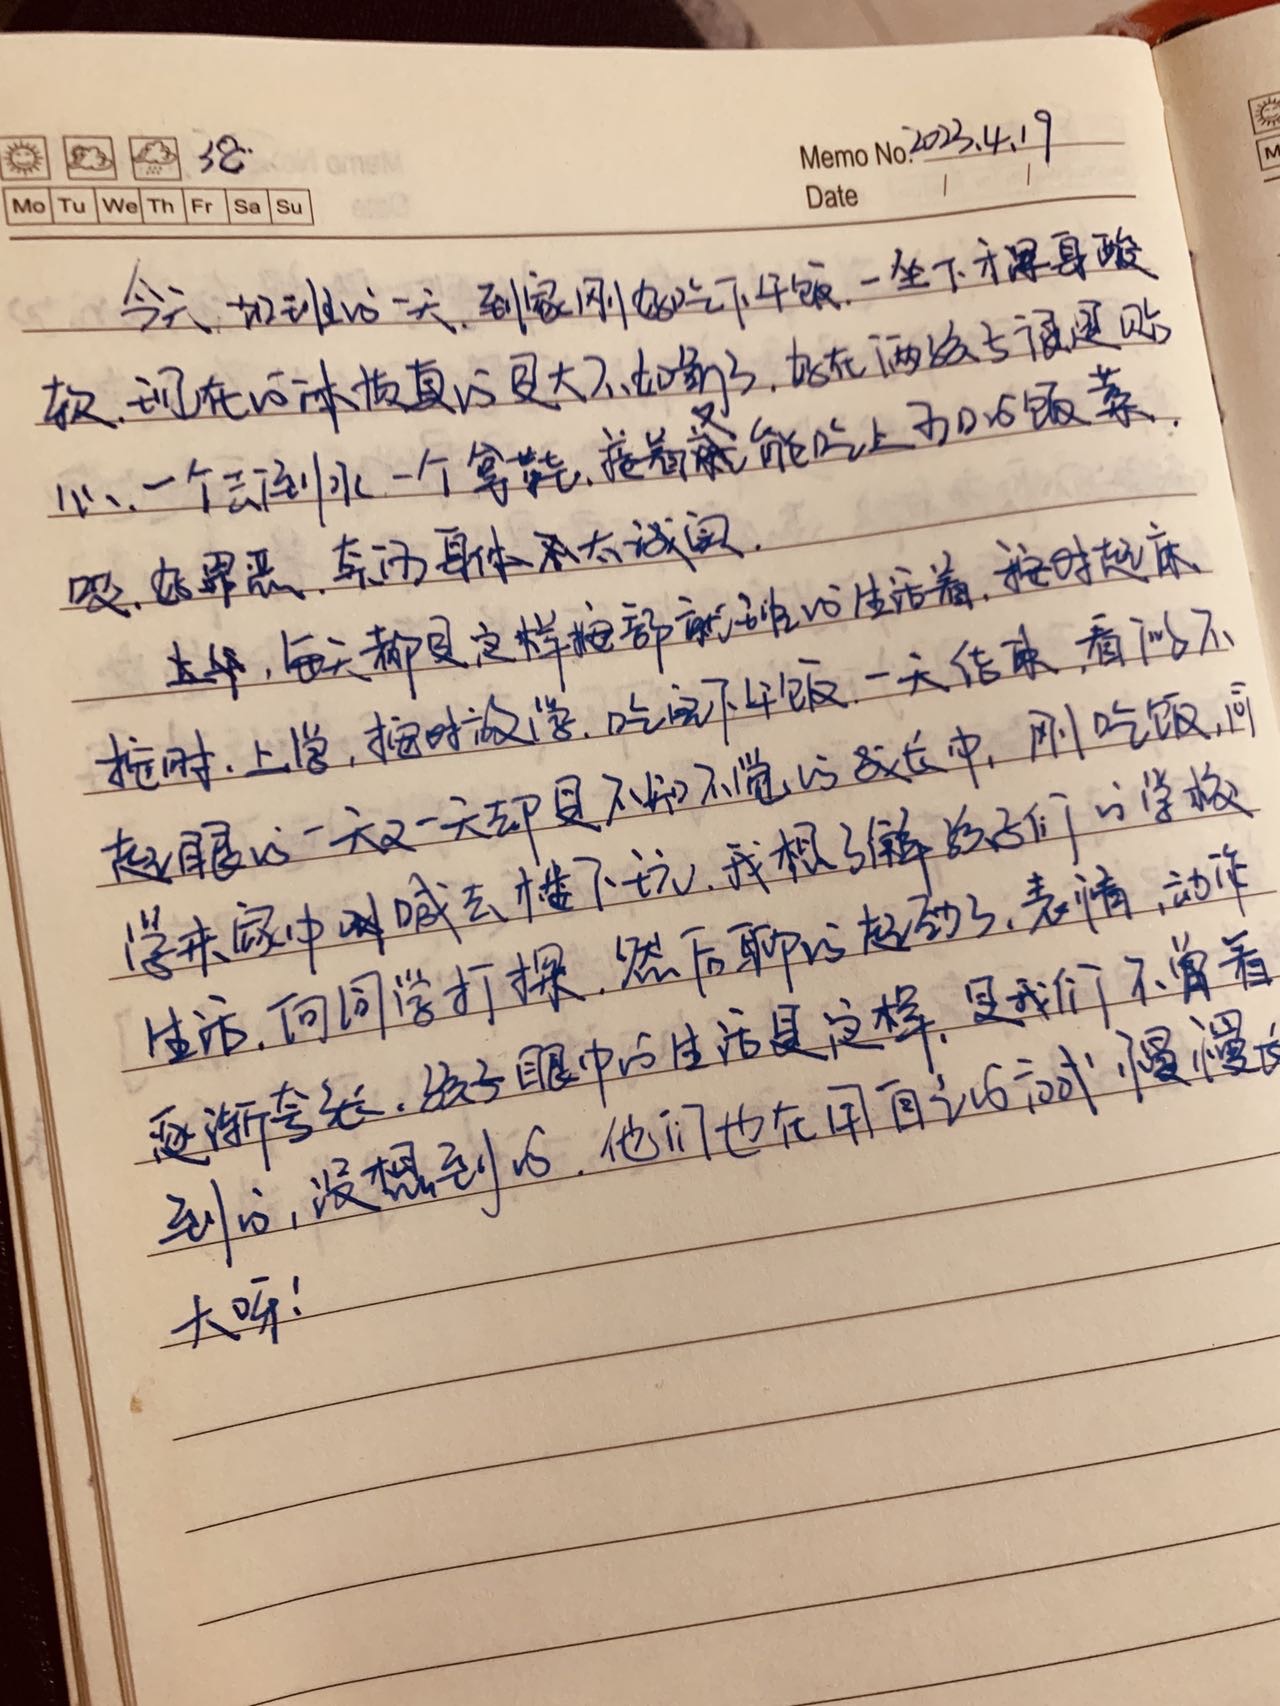 38.
Memo No. 2023.4.19
Mo Tu We Th Fr Sa Su
Date / /
今天,加班的一天,到家刚好吃下午饭,一坐下才浑身酸
软,现在的体质真的是大不如前了,好在俩孩子很是贴
心、一个去倒水一个拿鞋,接着又能吃上可口的饭菜.
哎,好罪恶,奈何身体不太诚实.
每天都是这样按部就班的生活着,按时起床
按时,上学,按时放学.吃完下午饭.一天结束,看似不
起眼的一天又一天却是不知不觉的成长中,刚吃饭,同
学来家中叫喊去楼下玩,我想了解孩子们的学校
生活,向同学打探,然后聊的起劲了,表情,动作
逐渐夸张,孩子眼中的生活是这样,是我们不曾看
到的,没想到的.他们也在用自己的方式慢慢长
大呀!